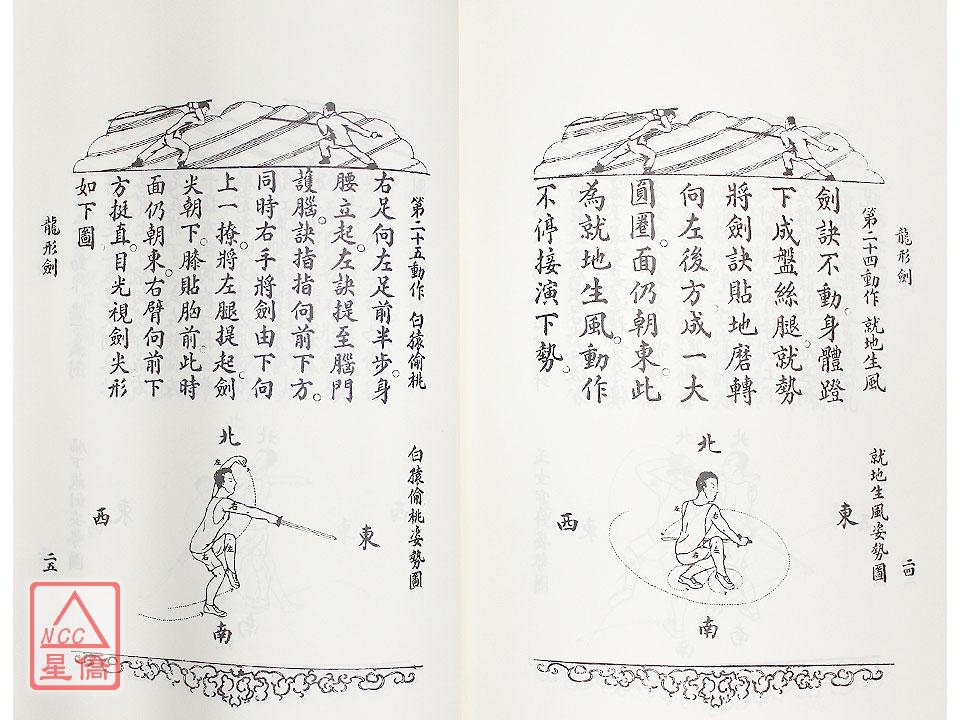 龍形劍
第二十四動作 就地生風
劍訣不動。身體蹬
下成盤絲腿就勢
將劍訣貼地磨轉
向左後方。成一大
圓圈。面仍朝東。此
為就地生風。動作
不停接演下勢。
就地生風姿勢圖
北
東
西
南
左
右
左
右
二四
第二十五動作 白猿偷桃
右足向左足前半步。身
腰立起。左訣提至腦門
護腦。訣指指向前下方。
同時右手將劍由下向
上一撩。將左腿提起。劍
尖朝下。膝貼胸前。此時
面仍朝東。右臂向前下
方挺直。目光視劍尖形
如下圖
白猿偷桃姿勢圖
北
東
西
南
左
右
左
右
龍形劍
二五
NCC
星僑